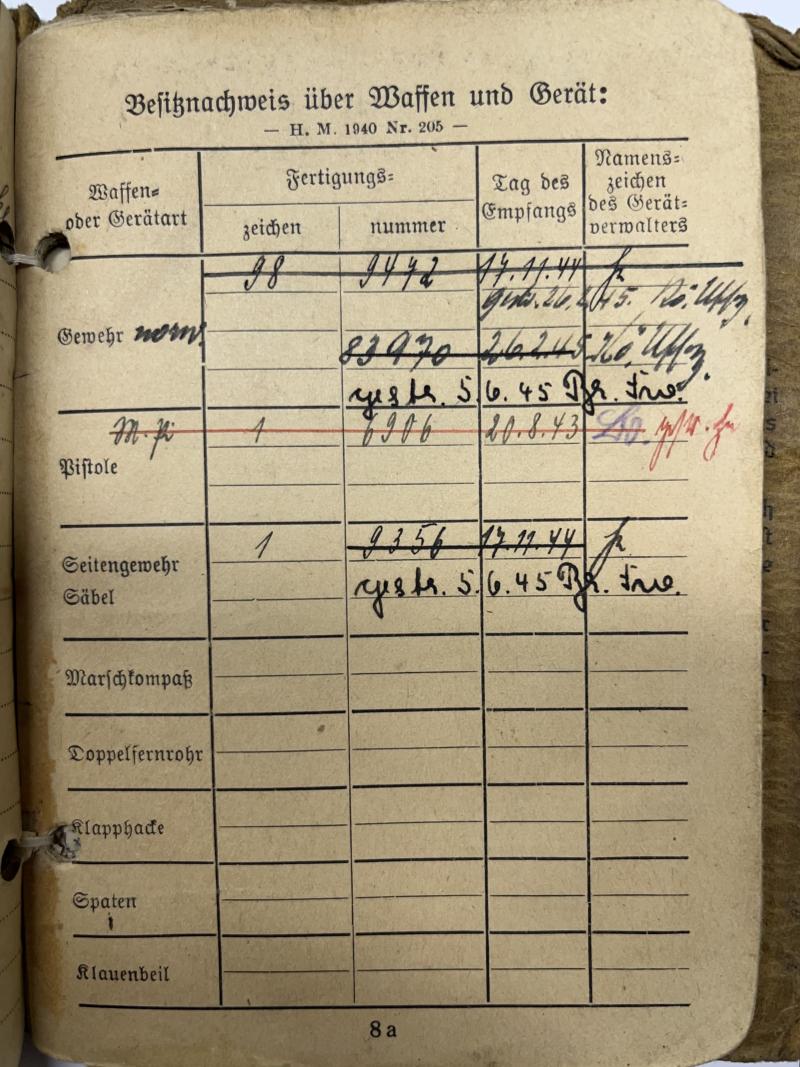 Besitznachweis über Waffen und Gerät:
— H. M. 1940 Nr. 205 —
Waffen- oder Gerätart
Fertigungs-
zeichen
nummer
Tag des Empfangs
Namens-
zeichen
des Gerät-
verwalters
98 9472 17.11.44
gestr. 26.2.45. Kö. Uffz.
Gewehr norw.
83970 26.2.45 Kö, Uffz.
gestr. 5.6.45
M. Pi 1 6906 20.8.43
Pistole
1 9356 17.11.44
Seitengewehr
Säbel
gestr. 5.6.45
Marschkompaß
Doppelfernrohr
Klapphacke
Spaten
Klauenbeil
8a